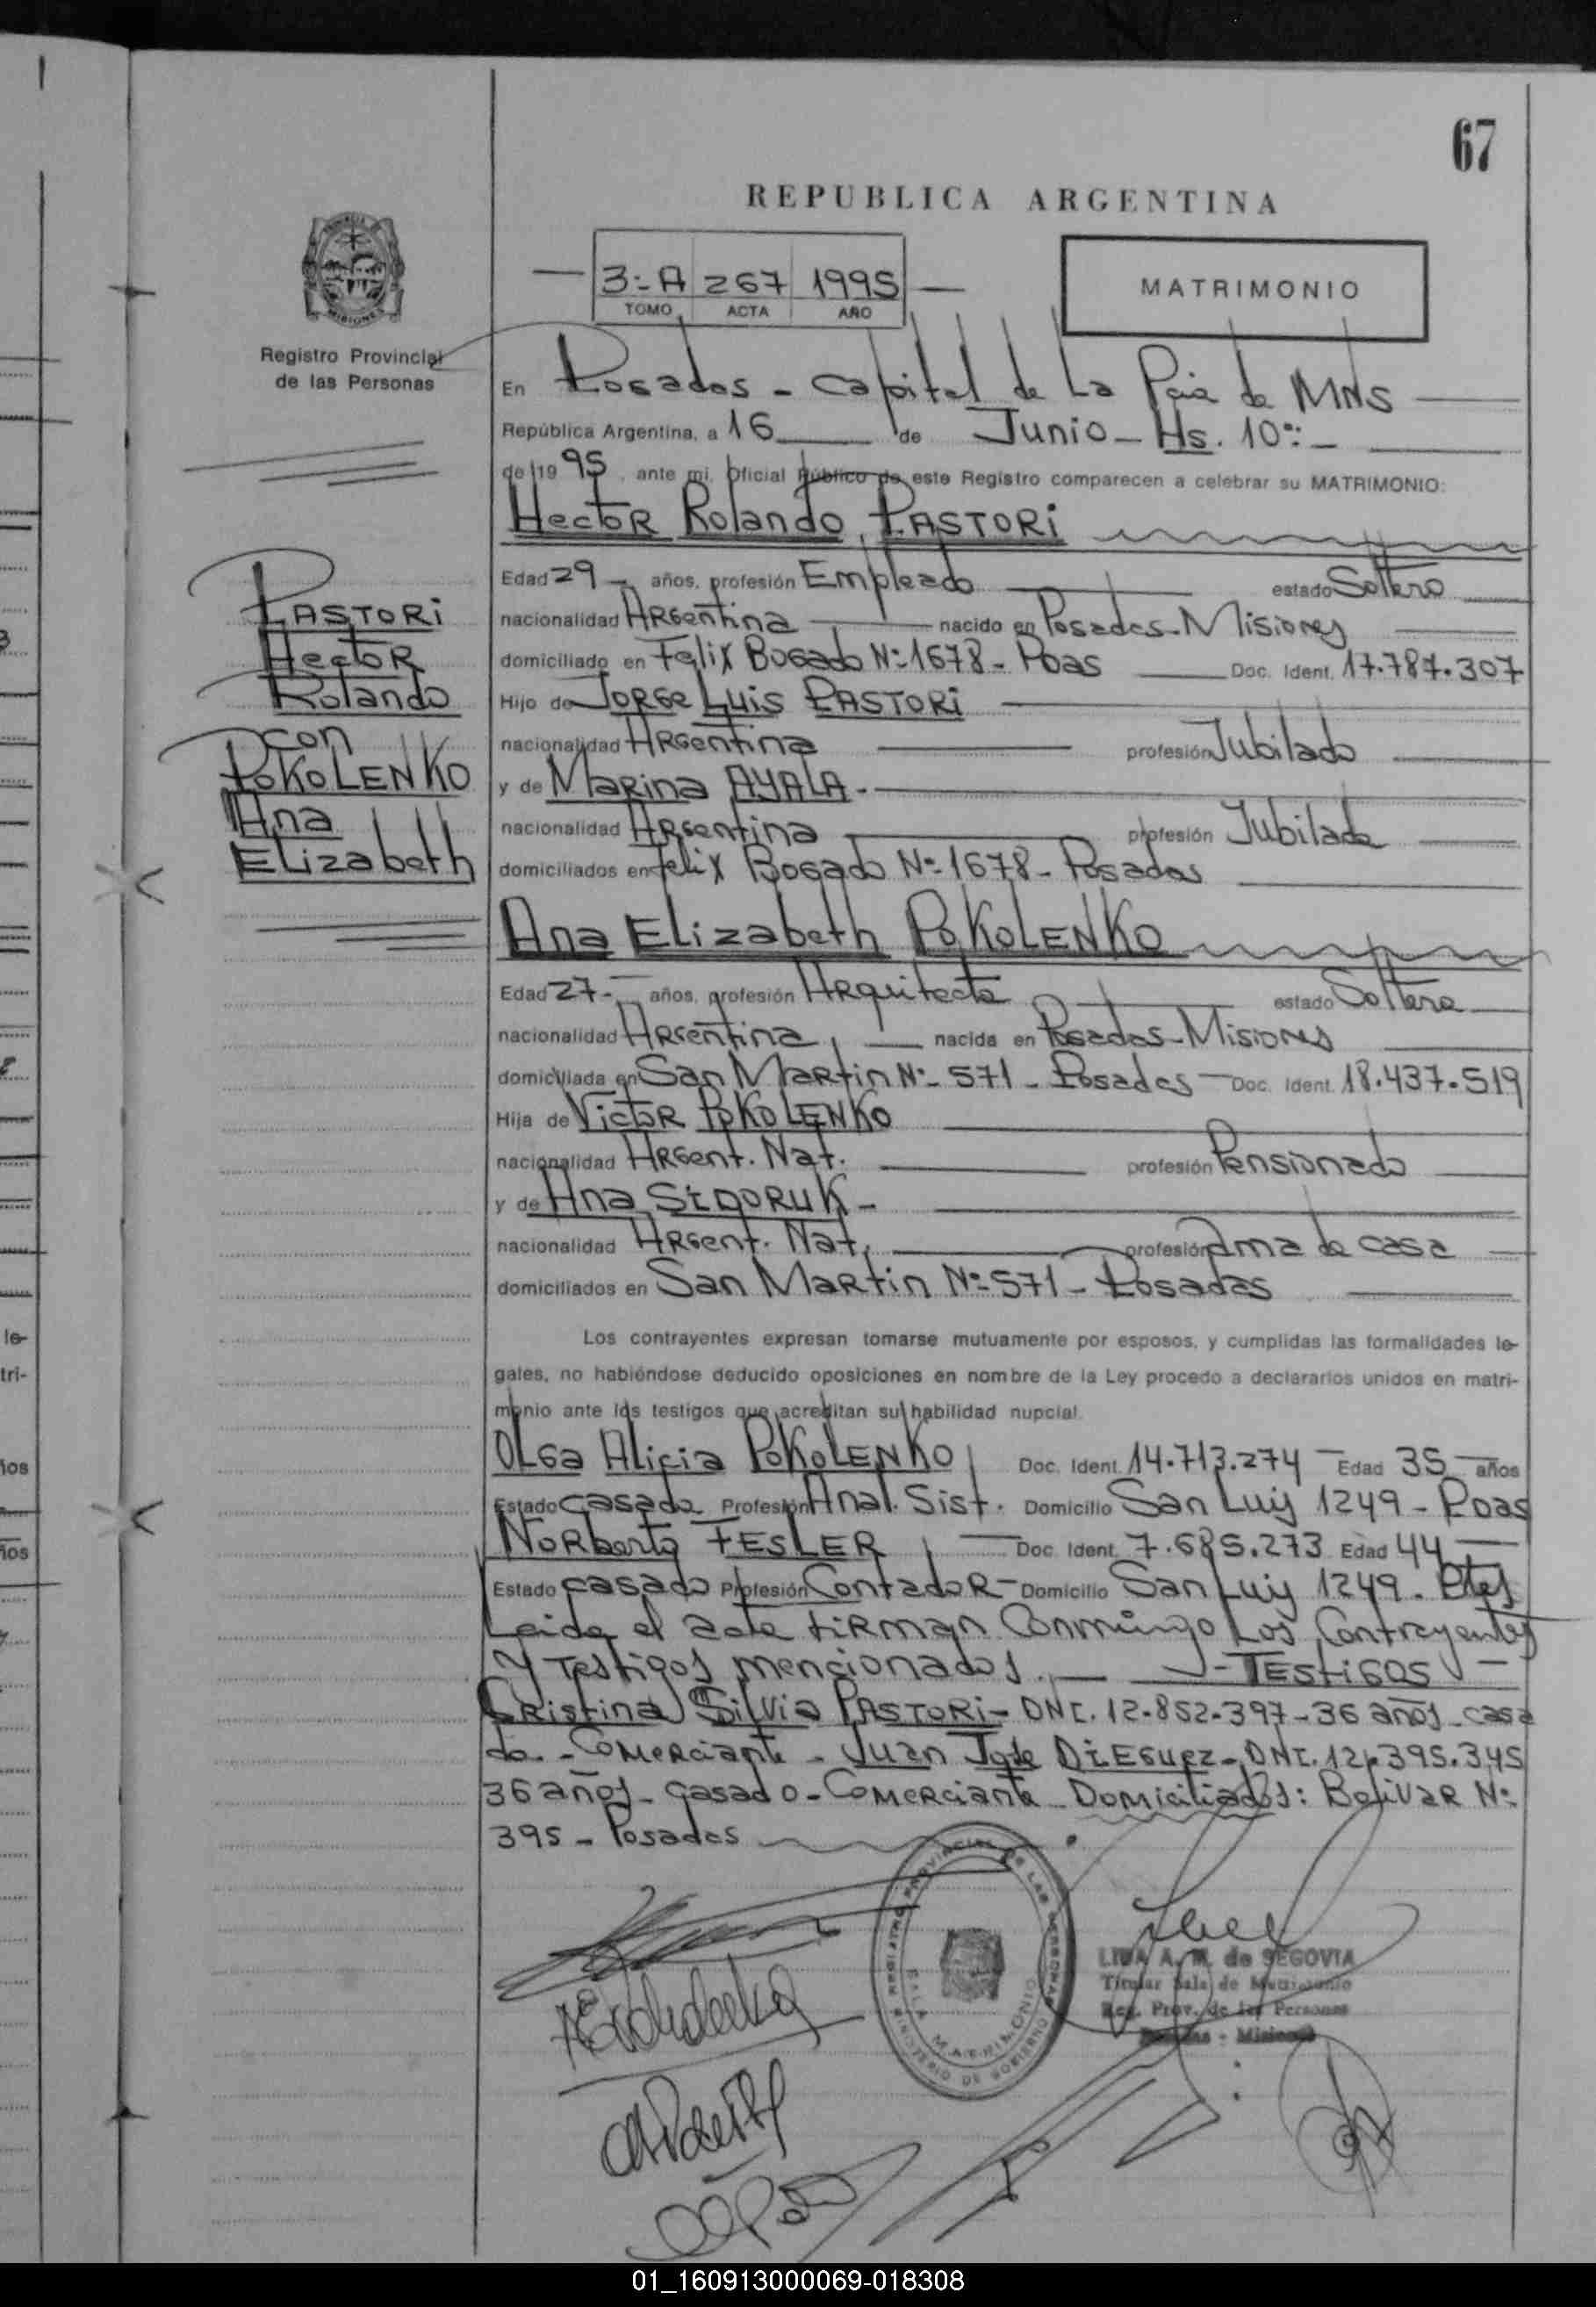 67
REPUBLICA ARGENTINA
3-A 267 1995
TOMO ACTA AÑO
MATRIMONIO
MISIONES
Registro Provincial
de las Personas
En Posadas - Capital de La Pcia de MNS
República Argentina, a 16 de Junio - Hs. 10:-
de 19 95, ante mi, Oficial Público de este Registro comparecen a celebrar su MATRIMONIO:
Hector Rolando PASTORI
Edad 29 - años, profesión Empleado estado Soltero
nacionalidad Argentina nacido en Posadas - Misiones
domiciliado en Felix Bogado Nº 1678 - Pdas Doc. Ident. 17.787.307
Hijo de Jorge Luis PASTORI
nacionalidad Argentina profesión Jubilado
y de Marina AYALA -
nacionalidad Argentina profesión Jubilada
domiciliados en Felix Bogado Nº 1678 - Posadas
PASTORI
Hector
Rolando
con
POKOLENKO
Ana
Elizabeth
Ana Elizabeth POKOLENKO
Edad 27 - años, profesión Arquitecta estado Soltera
nacionalidad Argentina, nacida en Posadas - Misiones
domiciliada en San Martin Nº 571 - Posadas - Doc. Ident. 18.437.519
Hija de Victor POKOLENKO
nacionalidad Argent. Nat. profesión Pensionado
y de Ana SIDORUK -
nacionalidad Argent. Nat. profesión Ama de casa
domiciliados en San Martin Nº 571 - Posadas
Los contrayentes expresan tomarse mutuamente por esposos, y cumplidas las formalidades le-
gales, no habiéndose deducido oposiciones en nombre de la Ley procedo a declararlos unidos en matri-
monio ante los testigos que acreditan su habilidad nupcial.
Olga Alicia POKOLENKO Doc. Ident. 14.713.274 - Edad 35 años
Estado casada Profesión Anal. Sist. Domicilio San Luis 1249 - Pdas
Norberto FESLER Doc. Ident. 7.685.273 Edad 44
Estado casado Profesión Contador - Domicilio San Luis 1249 -
Leida el acta firman Conmigo Los Contrayentes
y Testigos mencionados. - Testigos -
Cristina Silvia PASTORI - DNI. 12.852.397 - 36 años - casa
da. - Comerciante - Juan José DIEGUEZ - DNI. 12.395.345
36 años - casado - Comerciante Domiciliados: Bolivar Nº
395 - Posadas
REGISTRO PROVINCIAL DE LAS PERSONAS
SALA MATRIMONIO
MINISTERIO DE GOBIERNO
A. M. de SEGOVIA
Titular Sala de Matrimonio
Reg. Prov. de las Personas
Posadas - Misiones
01_160913000069-018308